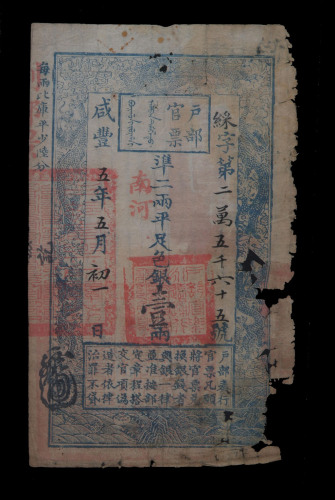 戶部
官票
綵字第二萬五千六十五號
準二兩平足色銀壹兩
南河
咸豐五年五月初一日
每兩比庫平少陸分
戶部奏行
官票凡願
將官票兌
換銀錢者
與銀一律
並准按部
定章程搭
交官項偽
造者依律
治罪不貸